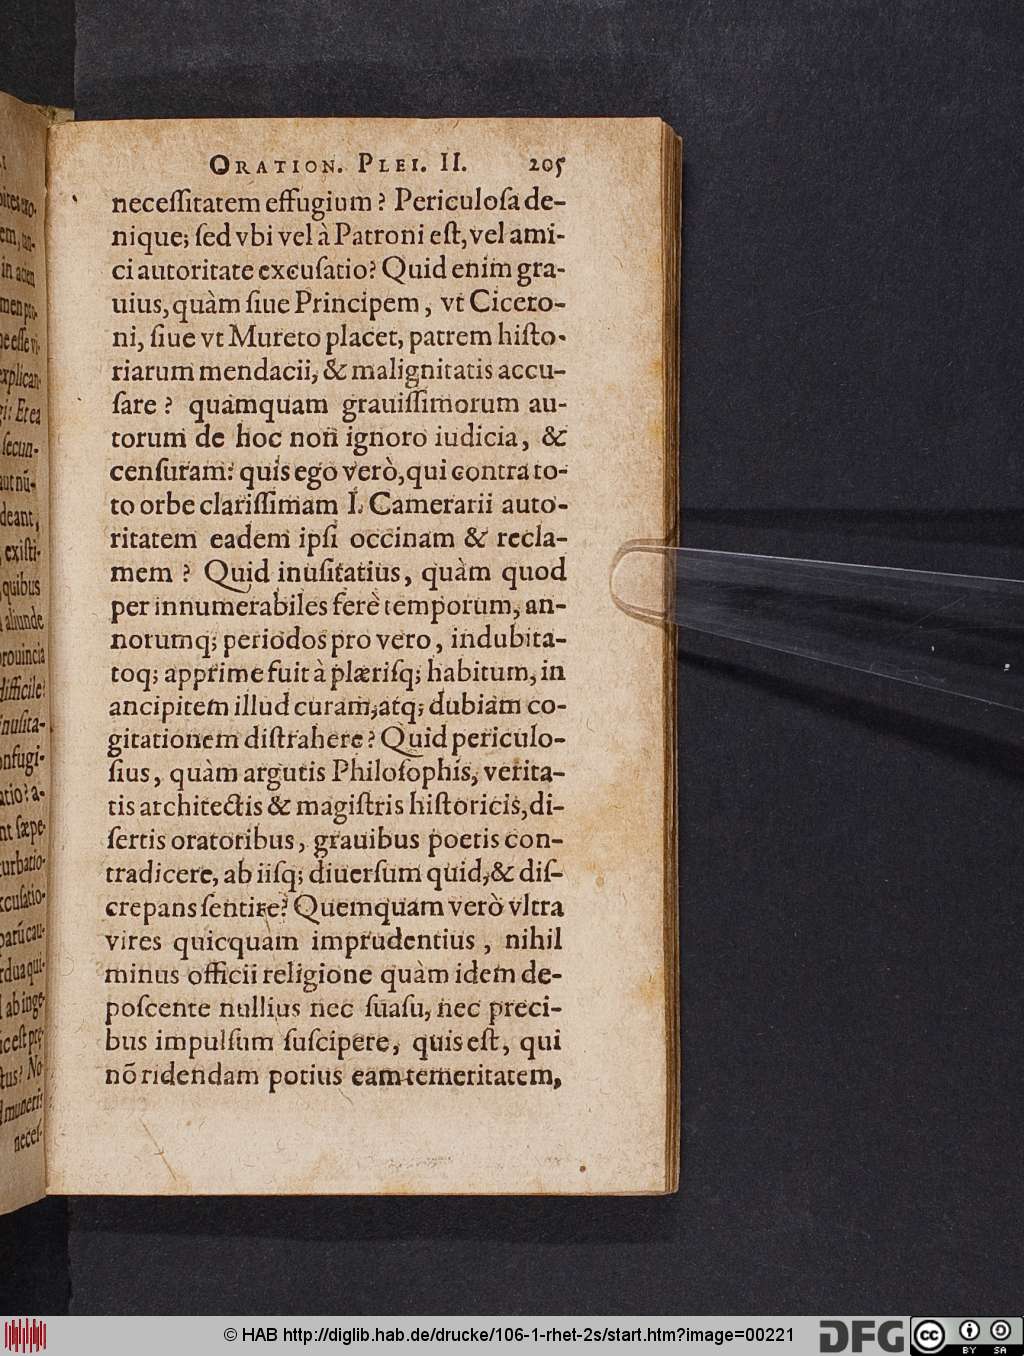 ORATION. PLEI. II. 205
neceſſitatem effugium? Periculoſa de-
nique; ſed vbi vel à Patroni eſt, vel ami-
ci autoritate excuſatio? Quid enim gra-
uius, quàm ſiue Principem, vt Cicero-
ni, ſiue vt Mureto placet, patrem hiſto-
riarum mendacii, & malignitatis accu-
ſare? quamquam grauiſſimorum au-
torum de hoc non ignoro iudicia, &
cenſuram: quis ego verò, qui contra to-
to orbe clariſſimam I. Camerarii auto-
ritatem eadem ipſi occinam & recla-
mem? Quid inuſitatius, quàm quod
per innumerabiles ferè temporum, an-
norumq; periodos pro vero, indubita-
toq; apprime fuit à plæriſq; habitum, in
ancipitem illud curam, atq; dubiam co-
gitationem diſtrahere? Quid periculo-
ſius, quàm argutis Philoſophis, verita-
tis architectis & magiſtris hiſtoricis, di-
ſertis oratoribus, grauibus poetis con-
tradicere, ab iiſq; diuerſum quid, & diſ-
crepans ſentire? Quemquam verò vltra
vires quicquam imprudentius, nihil
minus officii religione quàm idem de-
poſcente nullius nec ſuaſu, nec preci-
bus impulſum ſuſcipere, quis eſt, qui
nõ ridendam potius eam temeritatem,
em, un-
in acien
men pro-
explican-
gi: Et ea
ſecun-
aut nũ-
deant,
exiſti-
quibus
aliunde
prouincia
difficile?
inuſita-
onfugi-
atio? a-
nt ſæpe
turbatio-
xcuſatio-
parũ cau-
rdua qui-
ab inge-
tus? No
muneris
neceſ-
© HAB http://diglib.hab.de/drucke/106-1-rhet-2s/start.htm?image=00221
DFG
cc
BY SA